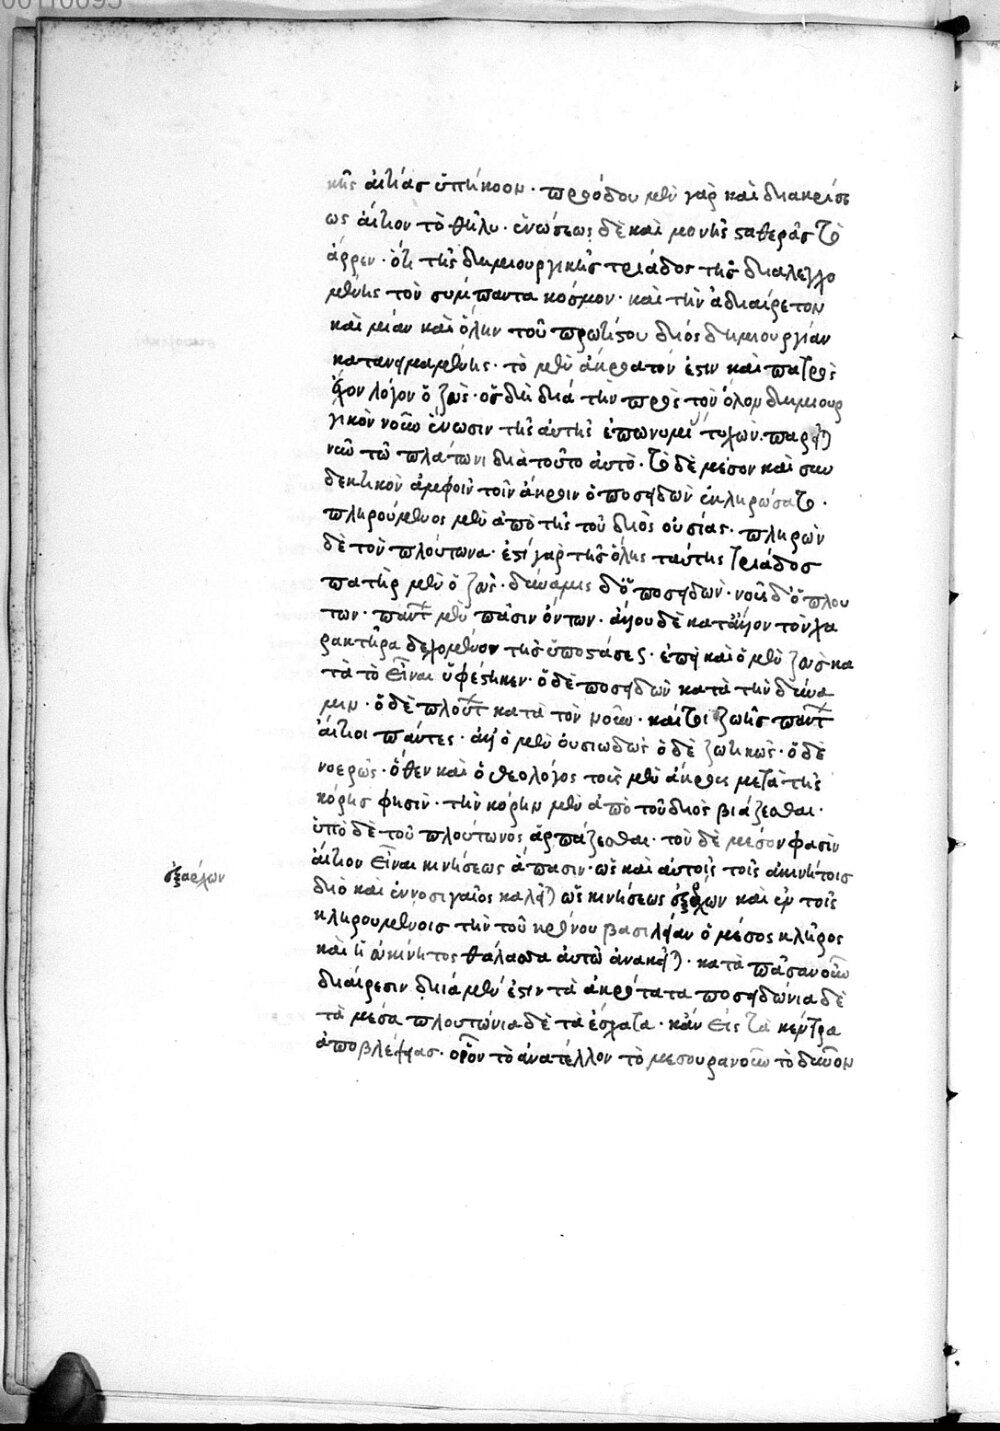 κῆς αἰτίας ὑπήκοον · προόδου μὲν γὰρ καὶ διακρίσε
ως αἴτιον τὸ θῆλυ · ἑνώσεως δὲ καὶ μονῆς σταθερᾶς τὸ
ἄρρεν · ὅτι τῆς δημιουργικῆς τριάδος τῆς διαλεγχο
μένης τὸν σύμπαντα κόσμον · καὶ τὴν ἀδιαίρετον
καὶ μίαν καὶ ὅλην τοῦ πρωτίστου διὸς δημιουργίαν
κατανειμαμένης · τὸ μὲν ἀκρότατόν ἐστιν καὶ πατρὸς
ἔχον λόγον ὁ ζεύς · ὃς δὴ διὰ τὴν πρὸς τὸν ὅλον δημιουρ
γικὸν νοῦν ἕνωσιν τῆς αὐτῆς ἐπωνυμίας τυχὼν παρεῖται
νῦν τῷ πλάτωνι διὰ τοῦτο αὐτό · τὸ δὲ μέσον καὶ συν
δετικὸν ἀμφοῖν τοῖν ἄκροιν ὁ ποσειδῶν ἐκληρώσατο ·
πληρούμενος μὲν ἀπὸ τῆς τοῦ διὸς οὐσίας · πληρῶν
δὲ τὸν πλούτωνα · ἔστι γὰρ τῆς ὅλης ταύτης τριάδος
πατὴρ μὲν ὁ ζεύς · δύναμις δὲ ὁ ποσειδῶν · νοῦς δὲ ὁ πλού
των · πάντων μὲν πᾶσιν ὄντων · ἄλλου δὲ κατ' ἄλλον τὸν χα
ρακτῆρα δεχομένου τῆς ὑποστάσεως · ἐπεὶ καὶ ὁ μὲν ζεὺς κα
τὰ τὸ εἶναι ὑφέστηκεν · ὁ δὲ ποσειδῶν κατὰ τὴν δύνα
μιν · ὁ δὲ πλούτων κατὰ τὸν νοῦν · καίτοι ζωῆς πάντων
αἴτιοι πάντες · ἀλλ' ὁ μὲν οὐσιωδῶς ὁ δὲ ζωτικῶς · ὁ δὲ
νοερῶς · ὅθεν καὶ ὁ θεολόγος τοῖς μὲν ἄκροις μετὰ τῆς
κόρης φησὶν · τὴν κόρην μὲν ἀπὸ τοῦ διὸς βιάζεσθαι ·
ὑπὸ δὲ τοῦ πλούτωνος ἁρπάζεσθαι · τὸν δὲ μέσον φασὶν
αἴτιον εἶναι κινήσεως ἅπασιν · ὡς καὶ αὐτοῖς τοῖς ἀκινήτοις
διὸ καὶ ἐννοσιγαῖος καλεῖται ὡς κινήσεως ἐξάρχων καὶ ἐν τοῖς
κληρουμένοις τὴν τοῦ κρόνου βασιλείαν ὁ μέσος κλῆρος
καὶ ἡ εὐκίνητος θάλασσα αὐτῷ ἀνακεῖται · κατὰ πᾶσαν οὖν
διαίρεσιν διὰ μὲν ἔστιν τὰ ἀκρότατα ποσειδώνια δὲ
τὰ μέσα πλουτώνια δὲ τὰ ἔσχατα · κἂν εἰς τὰ κέντρα
ἀποβλέψας · οἷον τὸ ἀνατέλλον τὸ μεσουρανοῦν τὸ δῦνον
ἐξάρχων